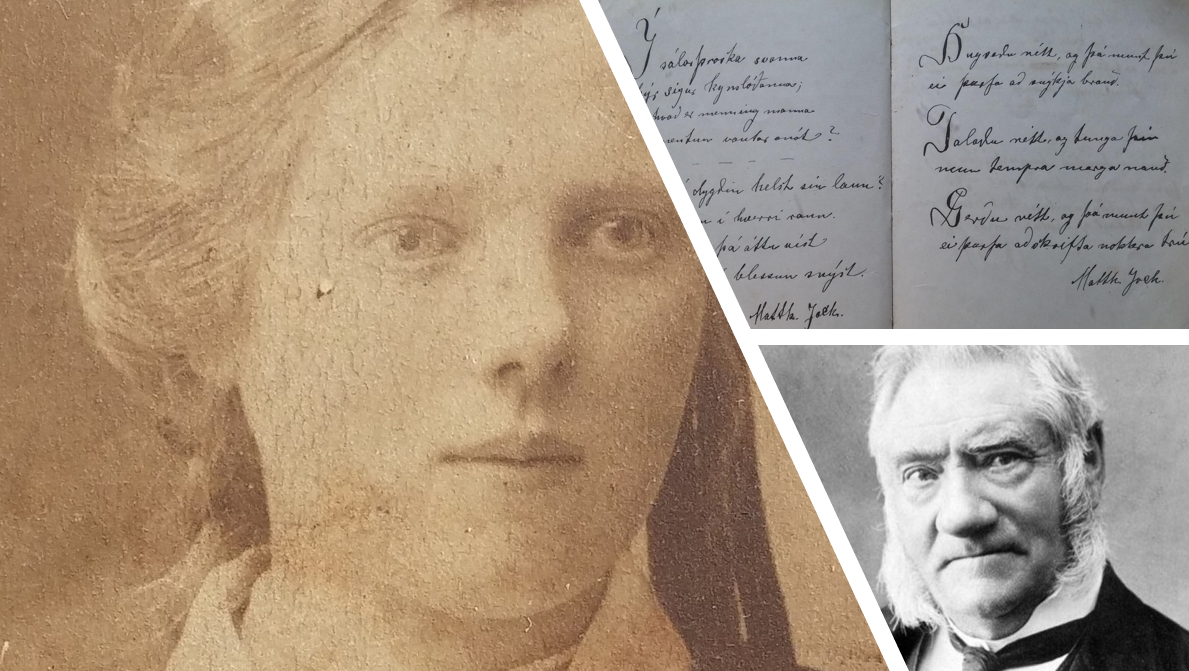 Í sálarþroska svanna
býr sigur kynslóðanna;
hvað er menning manna
mentun vantar snót?
dygðin helst sín laun?
í hverri raun.
þá áttu víst
blessun snýst.
Matth. Joch.
Hugsaðu rétt, og þá munt þú
ei þurfa að sníkja brauð.
Talaðu rétt, og tunga þín
mun tempra margra nauð.
Gerðu rétt, og þá munt þú
ei þurfa að skrifta nokkra trú
Matth. Joch.